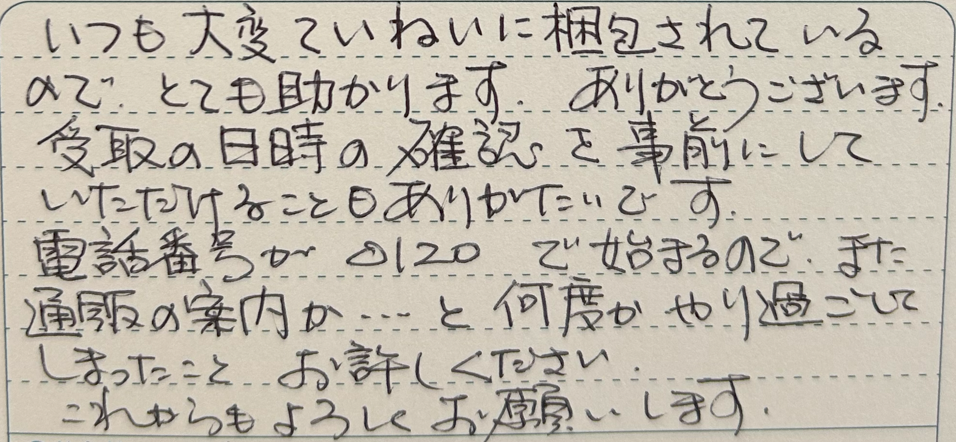 いつも大変ていねいに梱包されている
ので、とても助かります。ありがとうございます。
受取の日時の確認を事前にして
いただけることもありがたいです。
電話番号が0120で始まるので、また
通販の案内か…と何度かやり過ごして
しまったことお許しください。
これからもよろしくお願いします。